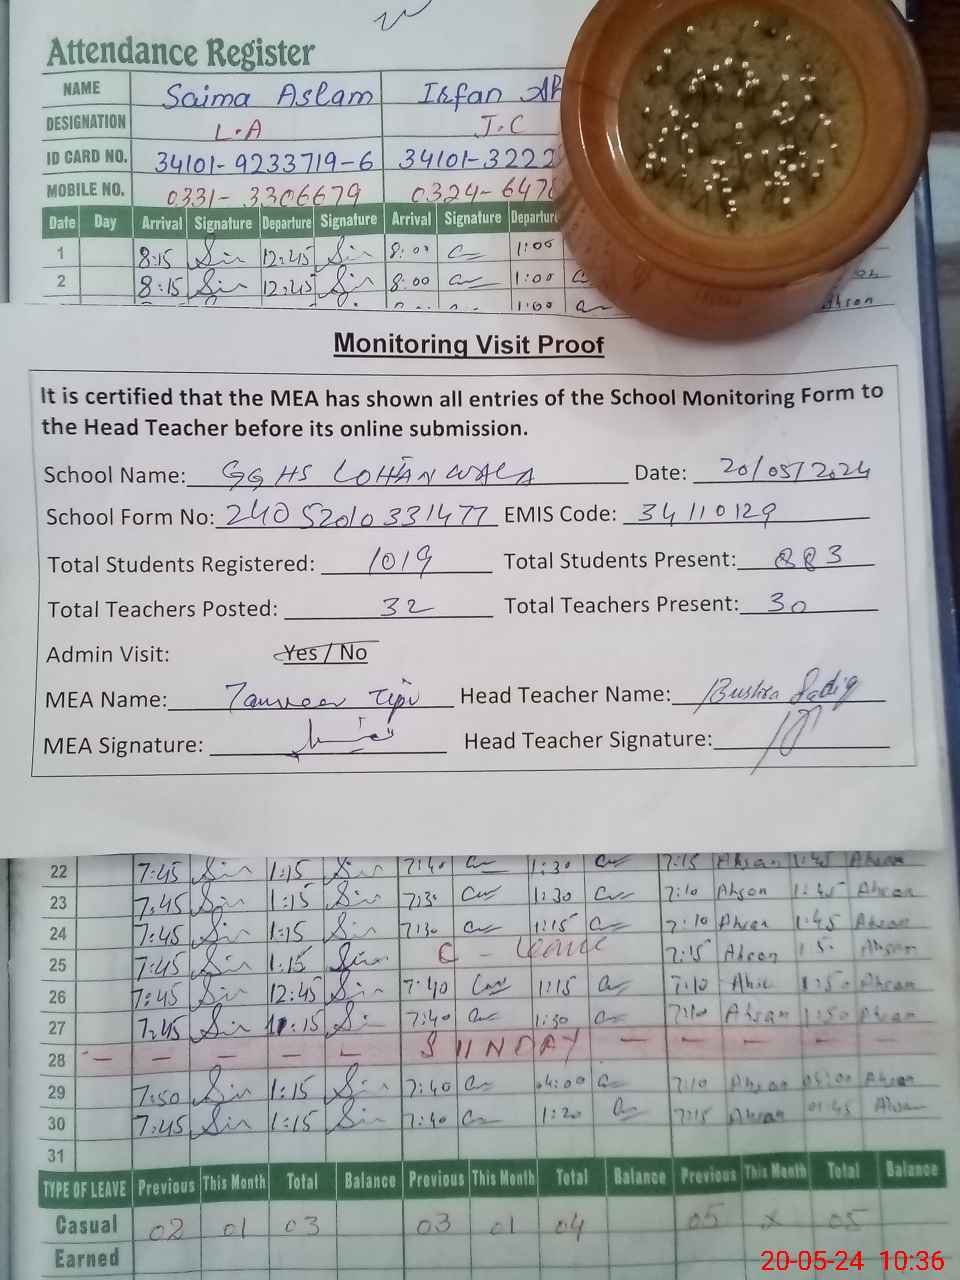 Attendance Register
NAME Saima Aslam Irfan
DESIGNATION L.A J.C
ID CARD NO. 34101-9233719-6 34101-3222
MOBILE NO. 0331-3306679 0324-647
Date Day Arrival Signature Departure Signature Arrival Signature Departure
1 8:15 12:45 8:00 1:00
2 8:15 12:45 8:00 1:00
1:00 Ahsan
Monitoring Visit Proof
It is certified that the MEA has shown all entries of the School Monitoring Form to
the Head Teacher before its online submission.
School Name: GGHS LOHANWALA Date: 20/05/2024
School Form No: 24052010331477 EMIS Code: 34110129
Total Students Registered: 1019 Total Students Present: 883
Total Teachers Posted: 32 Total Teachers Present: 30
Admin Visit: Yes / No
MEA Name: Tanveer Tipu Head Teacher Name: Bushra Sadiq
MEA Signature: Head Teacher Signature:
22 7:45 1:15 7:40 1:30 7:15 Ahsan 1:45 Ahsan
23 7:45 1:15 7:30 1:30 7:10 Ahsan 1:45 Ahsan
24 7:45 1:15 7:30 1:15 7:10 Ahsan 1:45 Ahsan
25 7:45 1:15 C - Leave 7:15 Ahsan Ahsan
26 7:45 12:45 7:40 1:15 7:10 1:50 Ahsan
27 7:45 7:40 1:30 7:10 Ahsan 1:50 Ahsan
28 - - - - - SUNDAY - - - - -
29 7:50 1:15 7:40 04:00 7:10 Ahsan 05:00 Ahsan
30 7:45 1:15 7:40 1:20 7:15 Ahsan 01:45 Ahsan
31
TYPE OF LEAVE Previous This Month Total Balance Previous This Month Total Balance Previous This Month Total Balance
Casual 02 01 03 03 01 04 05 x 05
Earned
20-05-24 10:36